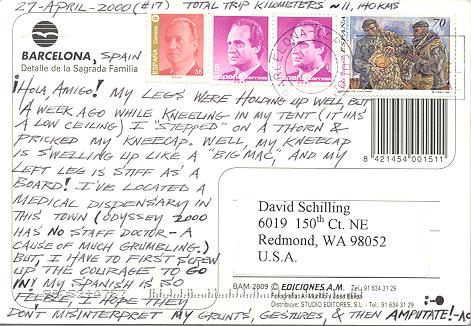 27-APRIL-2000 (#17) TOTAL TRIP KILOMETERS ~ 11,140 KMS
BARCELONA, SPAIN
Detalle de la Sagrada Familia
35
España
5
España correos
España correos
70
ESPAÑA
BARCELONA
¡HOLA, AMIGO! MY LEGS WERE HOLDING UP WELL, BUT
A WEEK AGO WHILE KNEELING IN MY TENT (IT HAS
A LOW CEILING) I "STEPPED" ON A THORN &
PRICKED MY KNEECAP. WELL, MY KNEECAP
IS SWELLING UP LIKE A "BIG MAC," AND MY
LEFT LEG IS STIFF AS A
BOARD! I'VE LOCATED A
MEDICAL DISPENSARY IN
THIS TOWN (ODYSSEY 2000
HAS NO STAFF DOCTOR - A
CAUSE OF MUCH GRUMBLING.)
BUT, I HAVE TO FIRST SCREW
UP THE COURAGE TO GO
IN! MY SPANISH IS SO
FEEBLE, I HOPE THEY
DON'T MISINTERPRET MY GRUNTS, GESTURES, & THEN AMPUTATE!
8 421454 001511
David Schilling
6019 150th Ct. NE
Redmond, WA 98052
U.S.A.
BAM-2809 © EDICIONES A.M. Tel.: 91 634 31 29
Distribuye: STUDIO EDITORES, S.L. - Tel.: 91 634 31 29